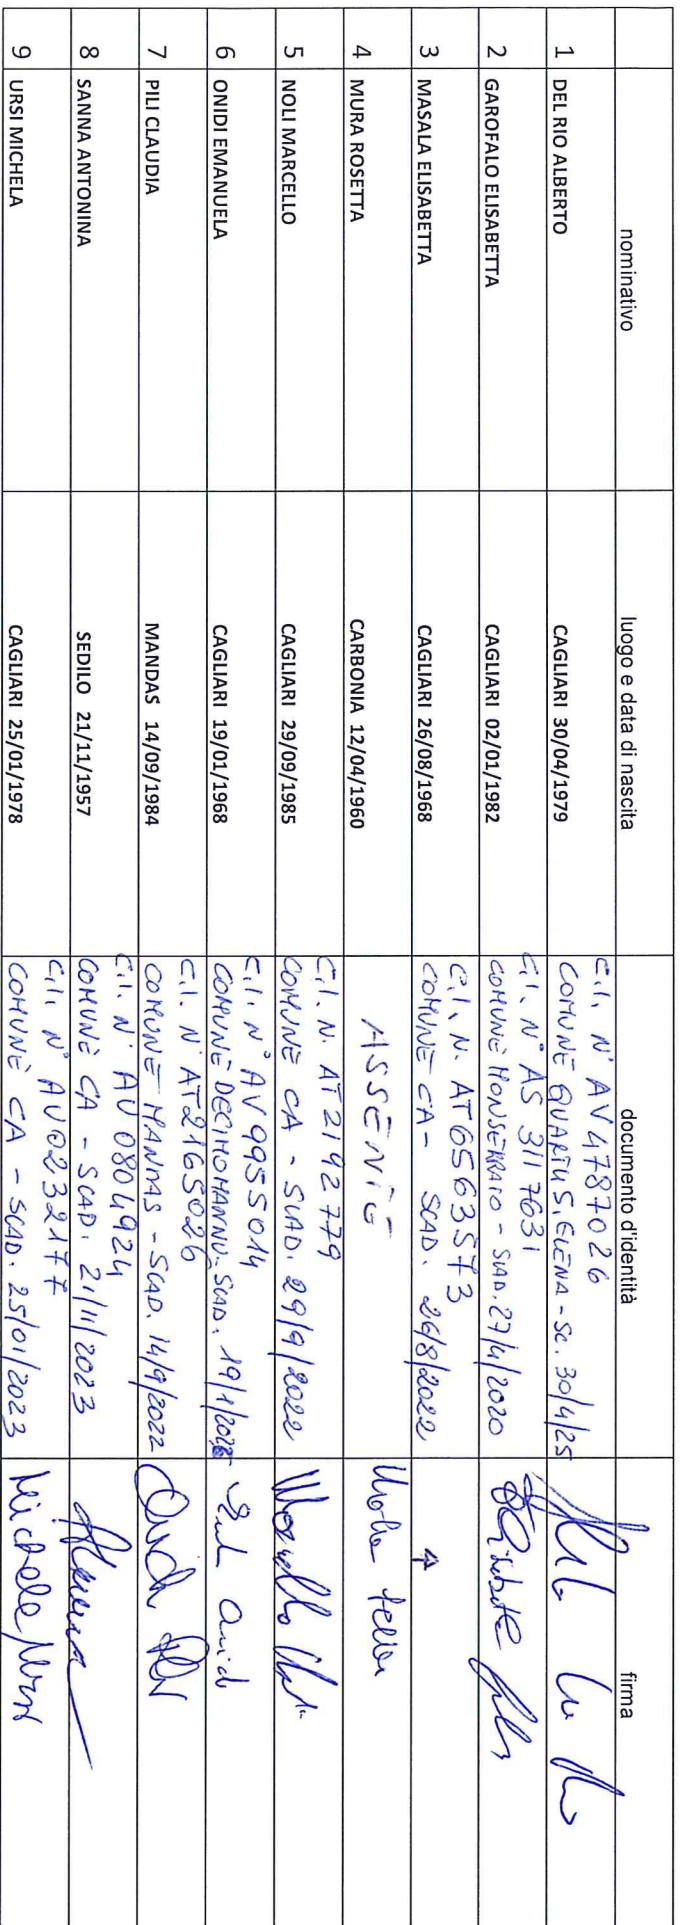 nominativo luogo e data di nascita documento d'identità firma
1 DEL RIO ALBERTO CAGLIARI 30/04/1979 C.I. N° AV4787026
COMUNE QUARTU S. ELENA - SC. 30/4/25
2 GAROFALO ELISABETTA CAGLIARI 02/01/1982 C.I. N° AS 3117631
COMUNE MONSERRATO - SCAD. 27/4/2020
3 MASALA ELISABETTA CAGLIARI 26/08/1968 C.I. N. AT6563573
COMUNE CA - SCAD. 26/8/2022
4 MURA ROSETTA CARBONIA 12/04/1960 ASSENTE
5 NOLI MARCELLO CAGLIARI 29/09/1985 C.I. N. AT 2192779
COMUNE CA - SCAD. 29/9/2022
6 ONIDI EMANUELA CAGLIARI 19/01/1968 C.I. N° AV 9955014
COMUNE DECIMOMANNU - SCAD. 19/1/
7 PILI CLAUDIA MANDAS 14/09/1984 C.I. N° AT2165026
COMUNE MANDAS - SCAD. 14/9/2022
8 SANNA ANTONINA SEDILO 21/11/1957 C.I. N° AU 0804924
COMUNE CA - SCAD. 21/11/2023
9 URSI MICHELA CAGLIARI 25/01/1978 C.I. N° AU0232177
COMUNE CA - SCAD. 25/01/2023 Michela Ursi